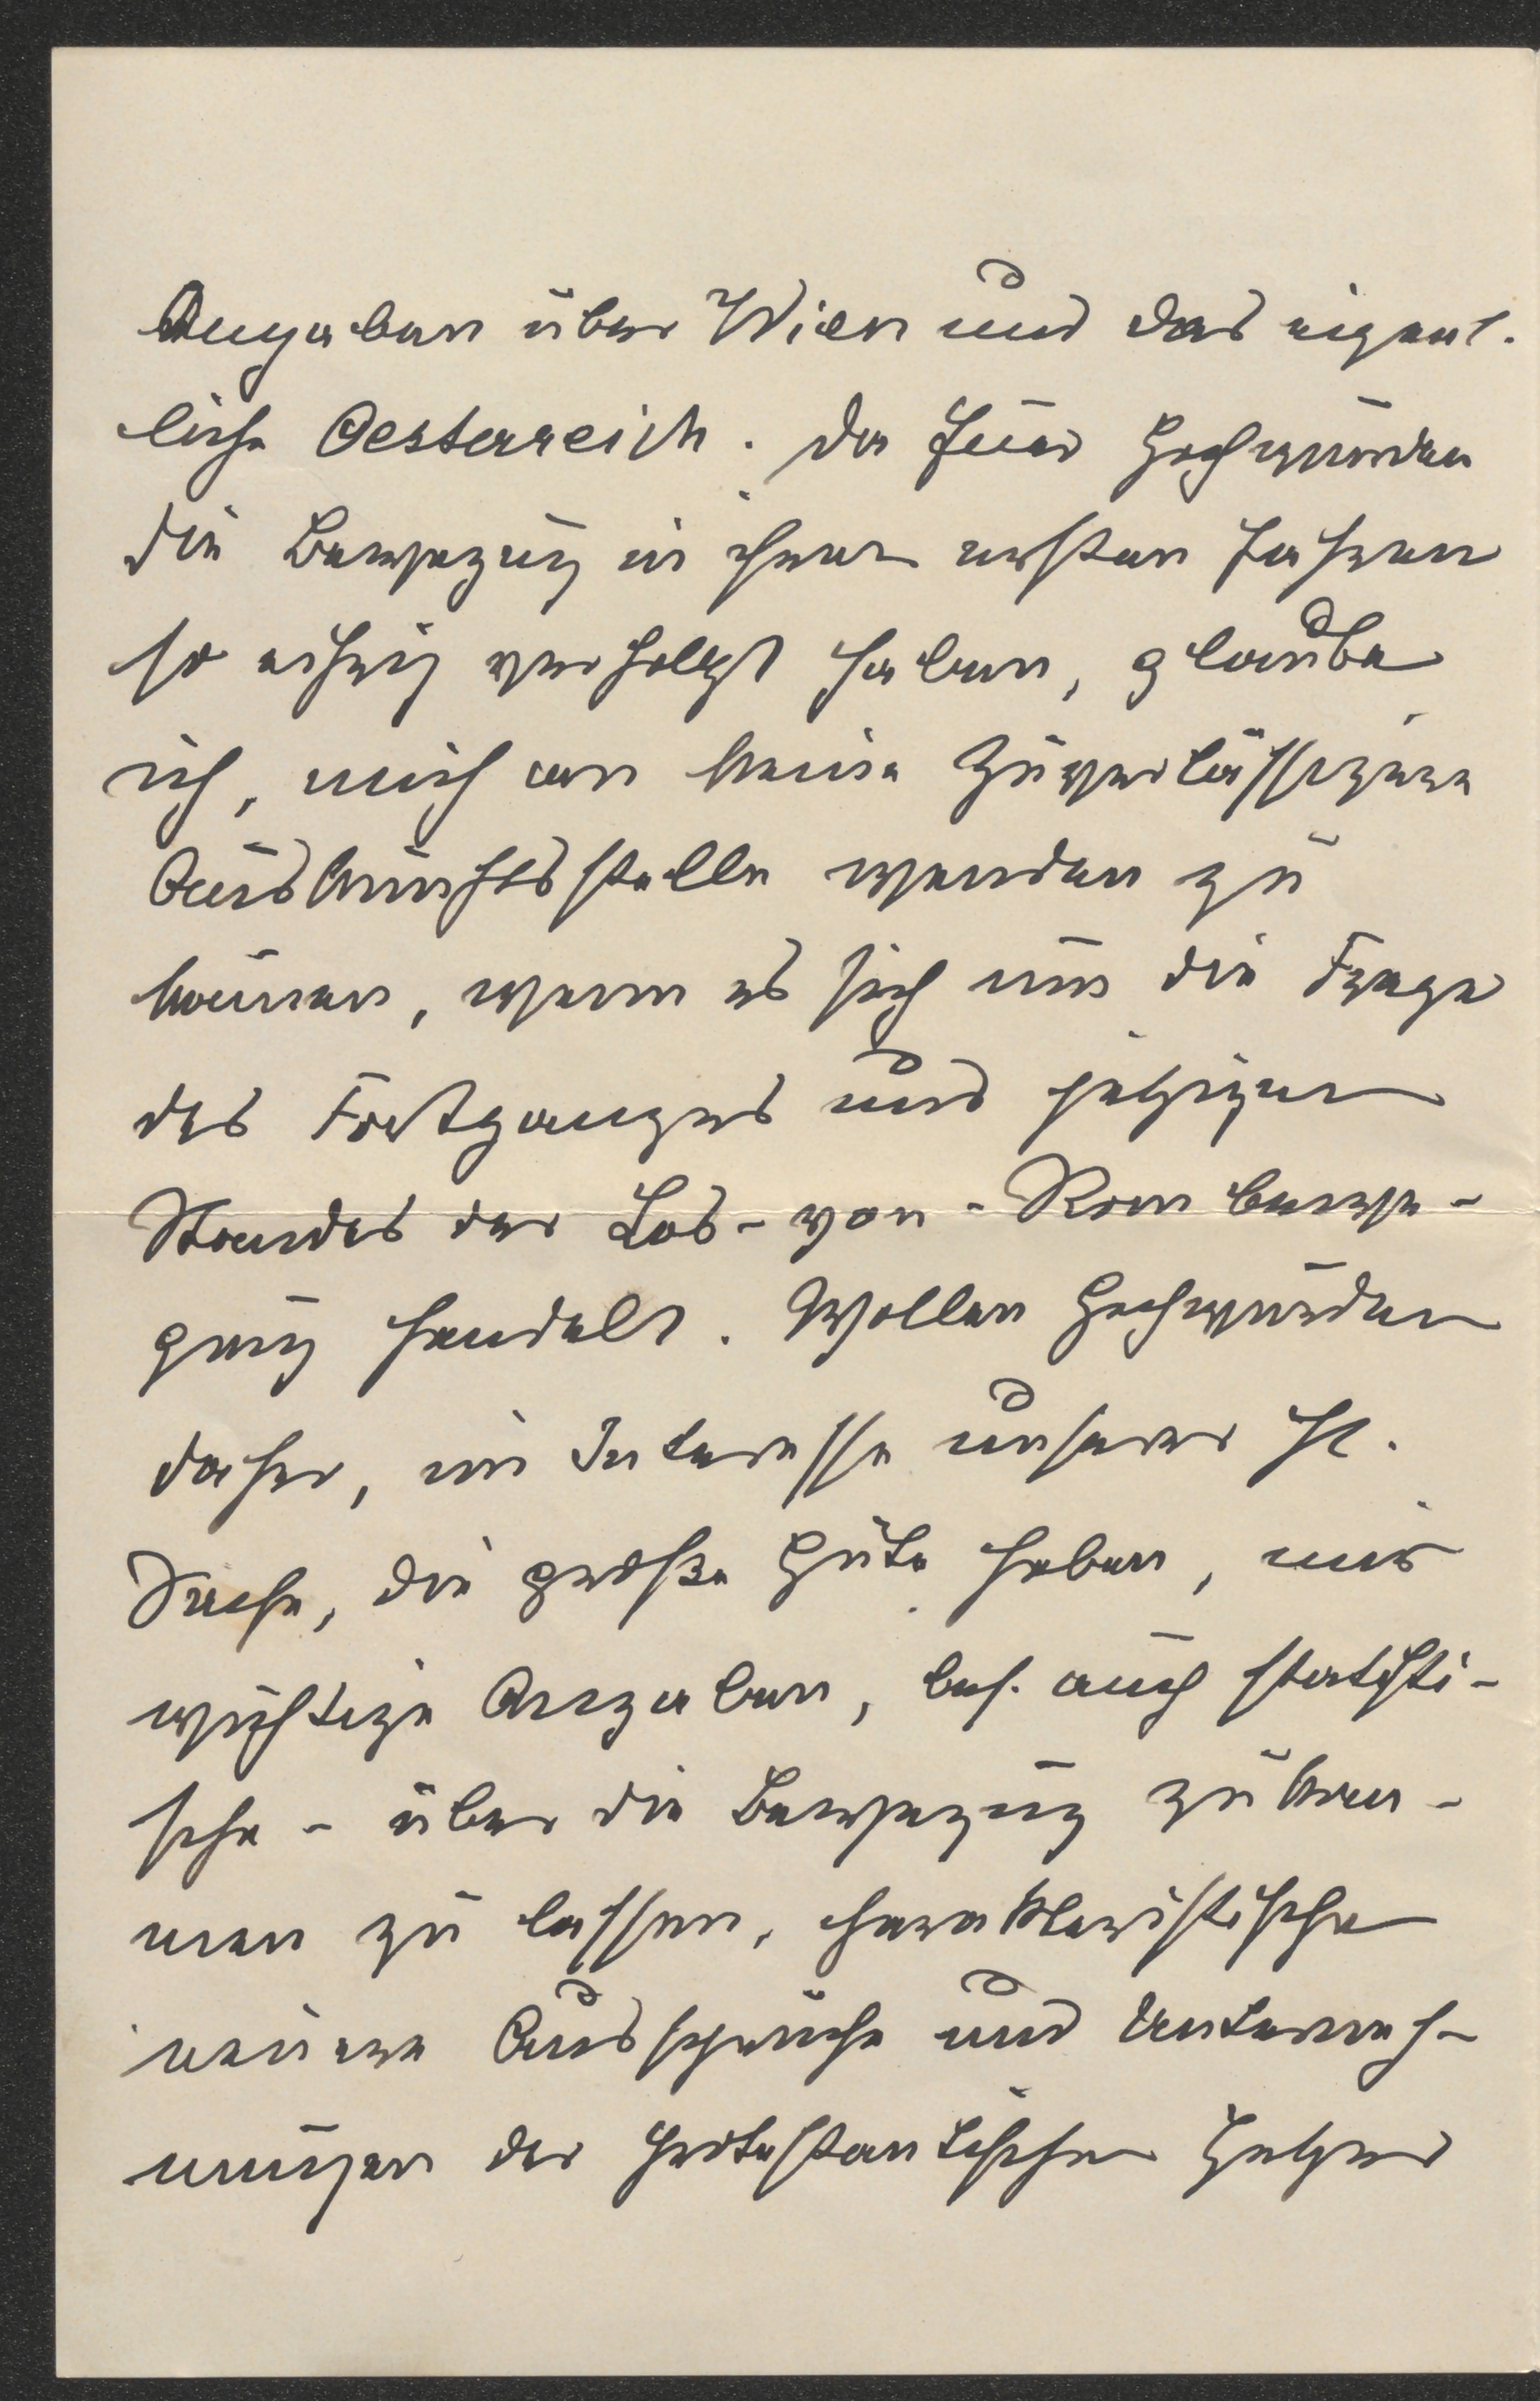 Angaben über Wien und das eigent-
liche Oesterreich. Da Euer Hochwürden
die Bewegung in ihren ersten Jahren
so eifrig verfolgt haben, glaube
ich, mich an keine zuverlässigere
Auskunftsstelle wenden zu
können, wenn es sich um die Frage
des Fortganges und jetzigen
Standes der Los-von-Rom bewe-
gung handelt. Wollen Hochwürden
daher, im Interesse unserer hl.
Sache, die große Güte haben, mir
wichtige Angaben, bes. auch statisti-
sche - über die Bewegung zukom-
men zu lassen, charakteristische
neuere Aussprüche und Unterneh-
mungen der protestantischen Hetzer